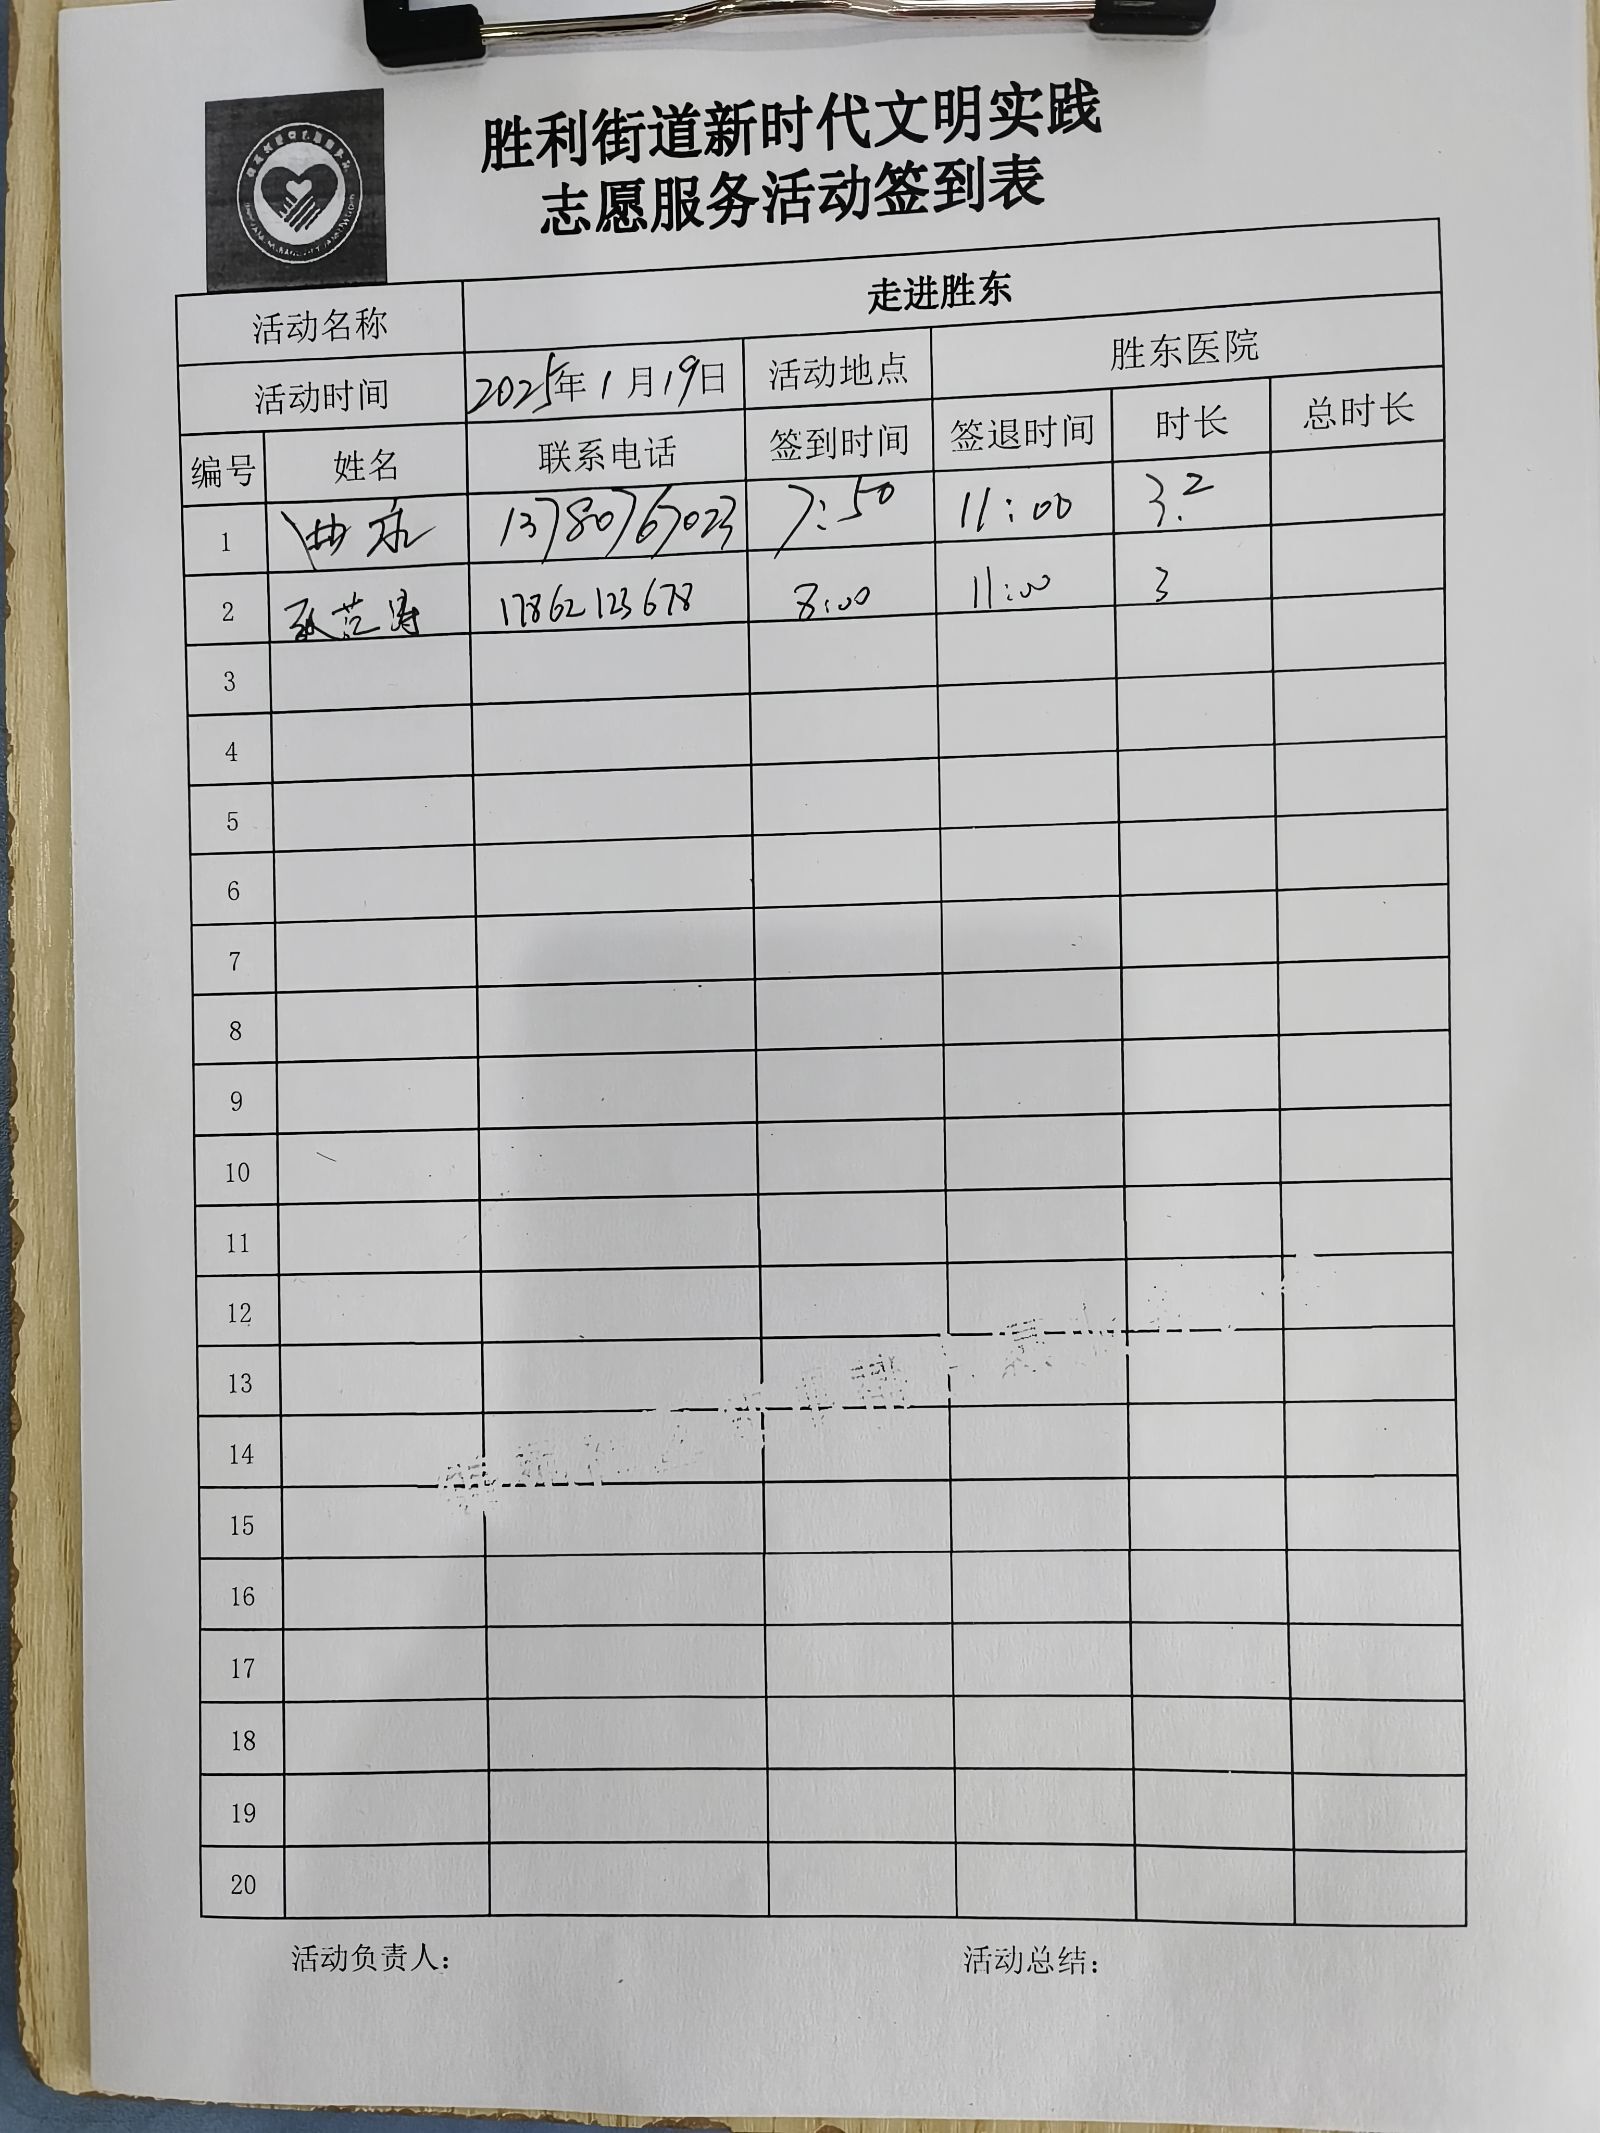 胜利街道新时代文明实践
志愿服务活动签到表
活动名称 走进胜东
活动时间 2025年1月19日 活动地点 胜东医院
编号 姓名 联系电话 签到时间 签退时间 时长 总时长
1 13780767023 7:50 11:00 3.2
2 17862123678 8:00 11:00 3
3
4
5
6
7
8
9
10
11
12
13
14
15
16
17
18
19
20
活动负责人： 活动总结：